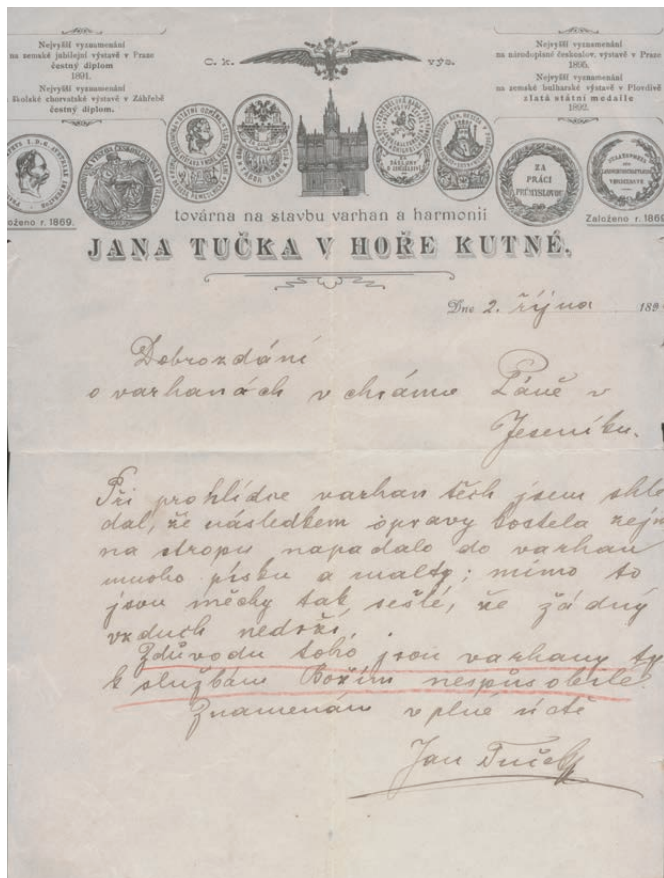 Nejvyšší vyznamenání
na zemské jubilejní výstavě v Praze
čestný diplom
1891.
Nejvyšší vyznamenání
školské chorvatské výstavě v Záhřebě
čestný diplom.
C. k. výs.
Nejvyšší vyznamenání
na národopisné českoslov. výstavě v Praze
1895.
Nejvyšší vyznamenání
na zemské bulharské výstavě v Plovdivě
zlatá státní medaile
1892.
ZA
PRÁCI
PRŮMYSLOVOU
loženo r. 1869.
Založeno r. 186
továrna na stavbu varhan a harmonií
JANA TUČKA V HOŘE KUTNÉ.
Dne 2. října 189
Dobrozdání
o varhanách v chrámě Páně v
Jeseníku.
Při prohlídce varhan těch jsem shle
dal, že následkem opravy kostela zejm
na stropu napadalo do varhan
mnoho písku a malty; mimo to
jsou měchy tak sešlé, že žádný
vzduch nedrží.
Zdůvodu toho jsou varhany ty
k službám Božím nespůsobilé.
Znamenám v plné úctě
Jan Tuček